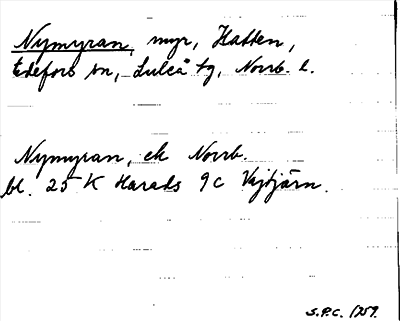 Nymyran, myr, Hatten,
Edefors sn, Luleå tg, Norrb. l.
Nymyran, ek Norrb.
bl. 25 K Harads 9 c Vajtjärn.
S.P.C. 1959.